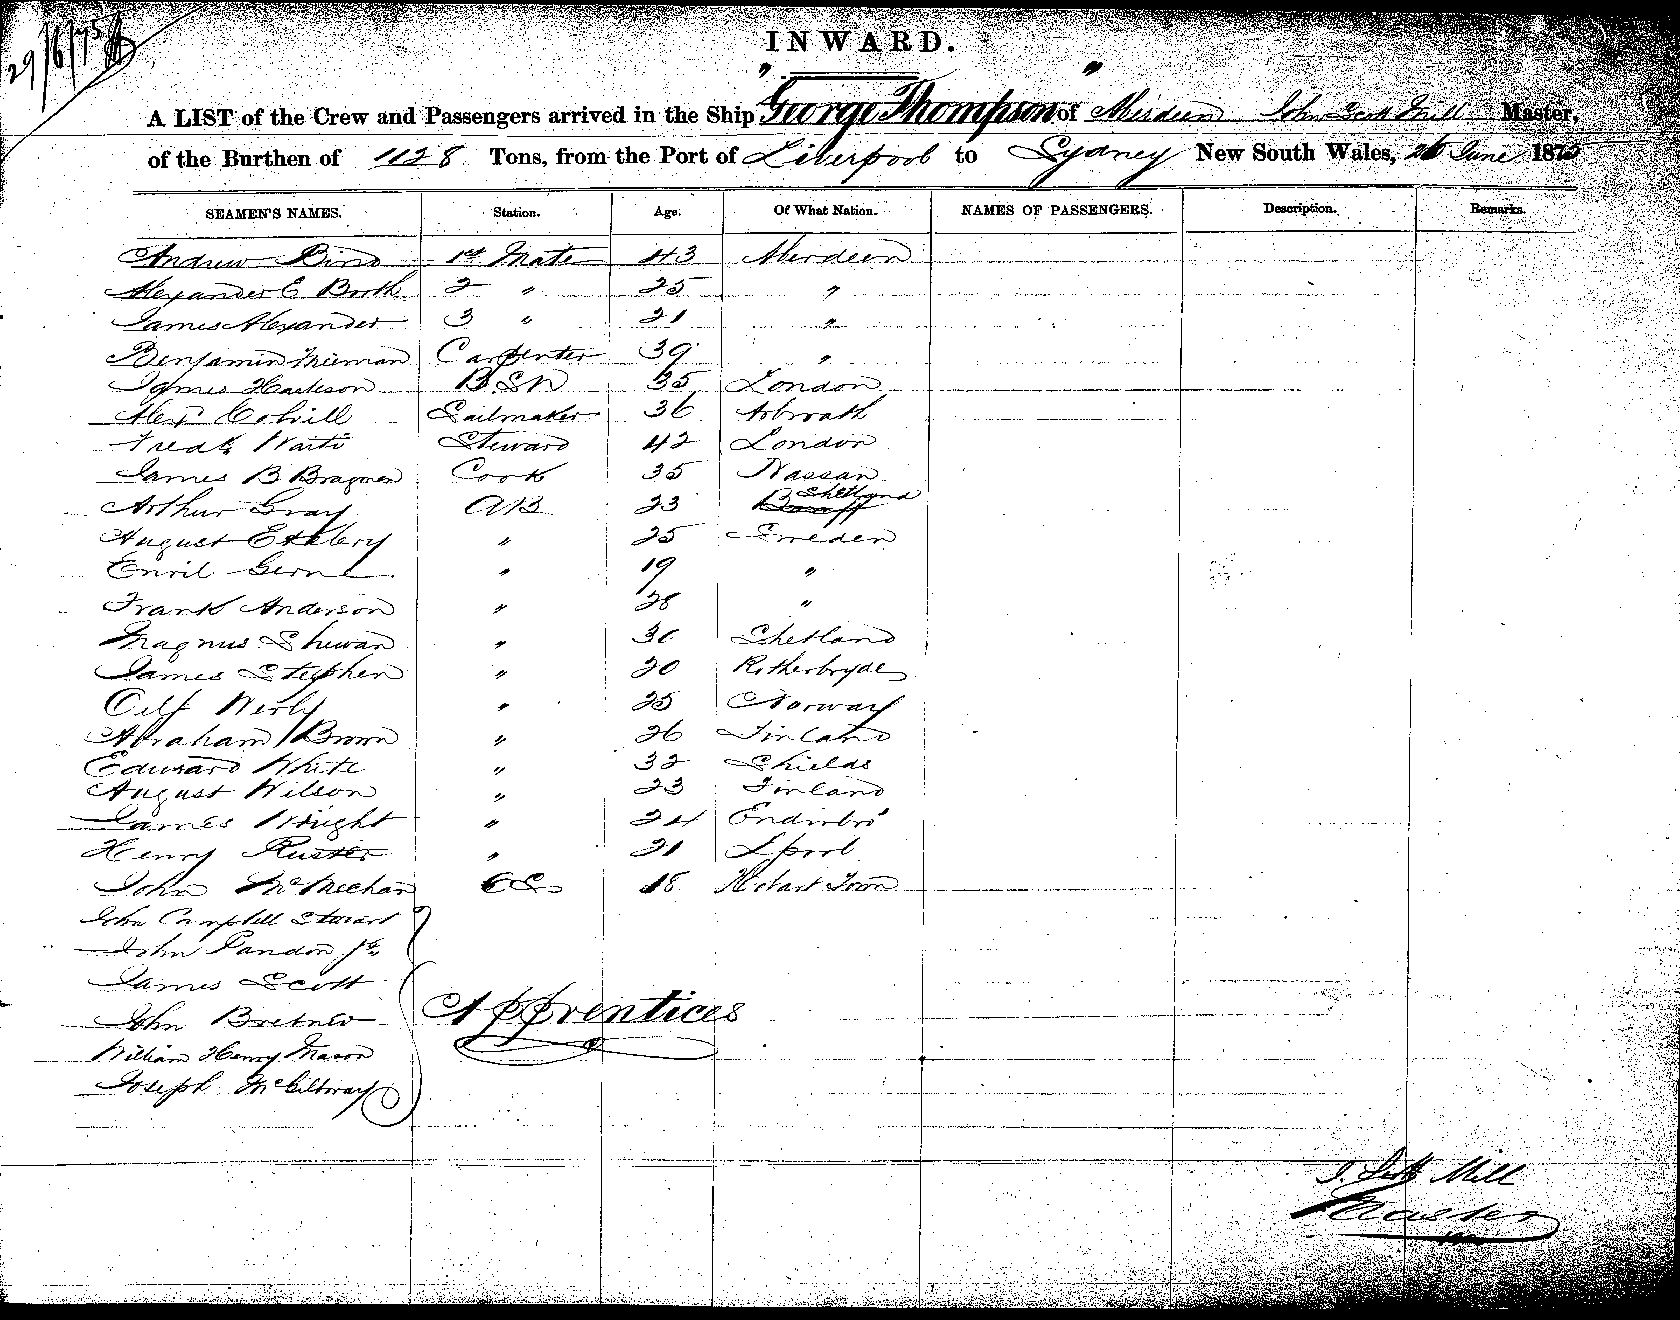 29/6/75
INWARD.
A LIST of the Crew and Passengers arrived in the Ship "George Thompson" of Aberdeen John Scott Mill Master,
of the Burthen of 1128 Tons, from the Port of Liverpool to Sydney New South Wales, 26 June 1875
SEAMEN'S NAMES. Station. Age. Of What Nation. NAMES OF PASSENGERS. Description. Remarks.
Andrew Bird 1st Mate 43 Aberdeen
Alexander E Booth 2 " 25 "
James Alexander 3 " 21 "
Benjamin Carpenter 39 "
James B.S.N 35 London
Alexr Colvill Sailmaker 36 Arbroath
Fredk Steward 42 London
James B Cook 35 Nassau
Arthur Gray AB 23 Banff Shetland
August " 25 Sweden
" 19 "
Frank Anderson " 28 "
Magnus Shewan " 30 Shetland
James Stephen " 20
" 25 Norway
Abraham Brown " 26 Finland
Edward White " 32 Shields
August Wilson " 23 Finland
James Wright " 24 Endinbro'
Henry Ruster " 21 Lpool
John McMechan OS 18 Hobart Town
John Campbell Stewart
John
James Scott
John
William Henry Mason
Joseph McGiltway
Apprentices
J. Scott Mill
Master